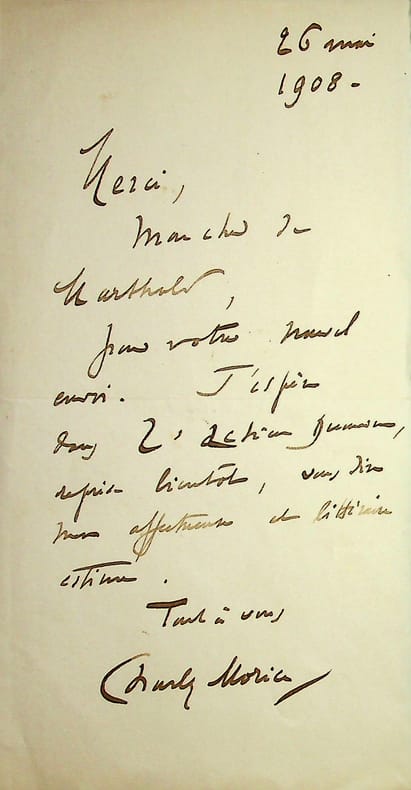 26 mai
1908 -
Merci,
Mon cher de
Marthold,
pour votre nouvel
envoi. J'espère
dans L'Action Humaine,
reprise bientôt, vous dire
mon affectueuse et littéraire
estime.
Tout à vous
Charles Morice